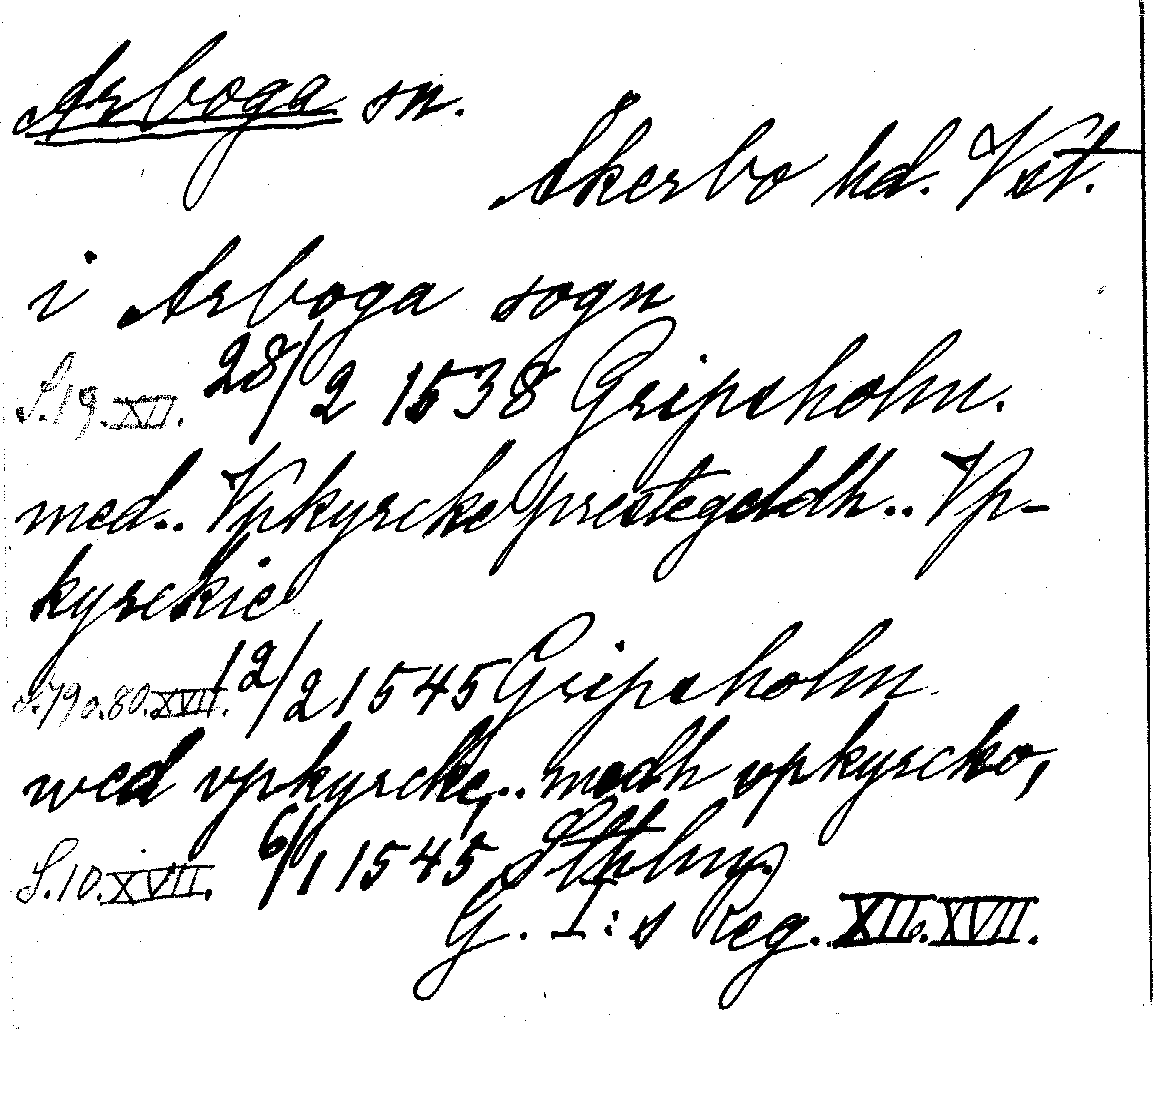 Arboga sn.
Åkerbo hd. Vst.
i Arboga sogn
S.19.XII. 28/2 1538 Gripsholm.
med.. Vpkyrcke prestegeldh.. Vp-
kyrckie
S.79o.80.XVII. 12/2 1545 Gripsholm
wed vpkyrcke,.. medh vpkyrcko,
S.10.XVII. 6/1 1545, Sthlm.
G. I:s Reg. XII. XVII.